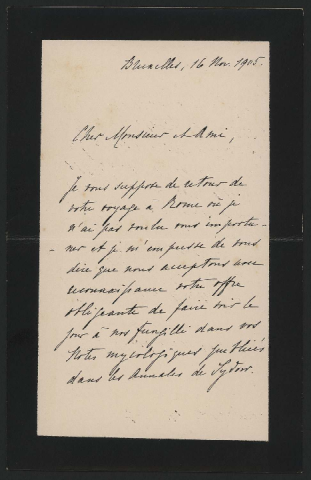 Bruxelles, 16 Nov. 1905.
Cher Monsieur et Ami,
Je vous suppose de retour de
votre voyage à Rome où je
n'ai pas voulu vous importu-
- ner et je m'empresse de vous
dire que nous acceptons avec
reconnaissance votre offre
obligeante de faire voir le
jour à nos fungilli dans vos
Notes mycologiques publiées
dans les Annales de Sydow.